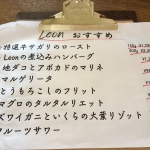 Leon おすすめ
特選牛サガリのロースト
Leonの煮込みハンバーグ
地ダコとアボカドのマリネ
マルゲリータ
とうもろこしのフリット
マグロのタルタルリエット
ズワイガニといくらの大葉リゾット
フルーツサワー